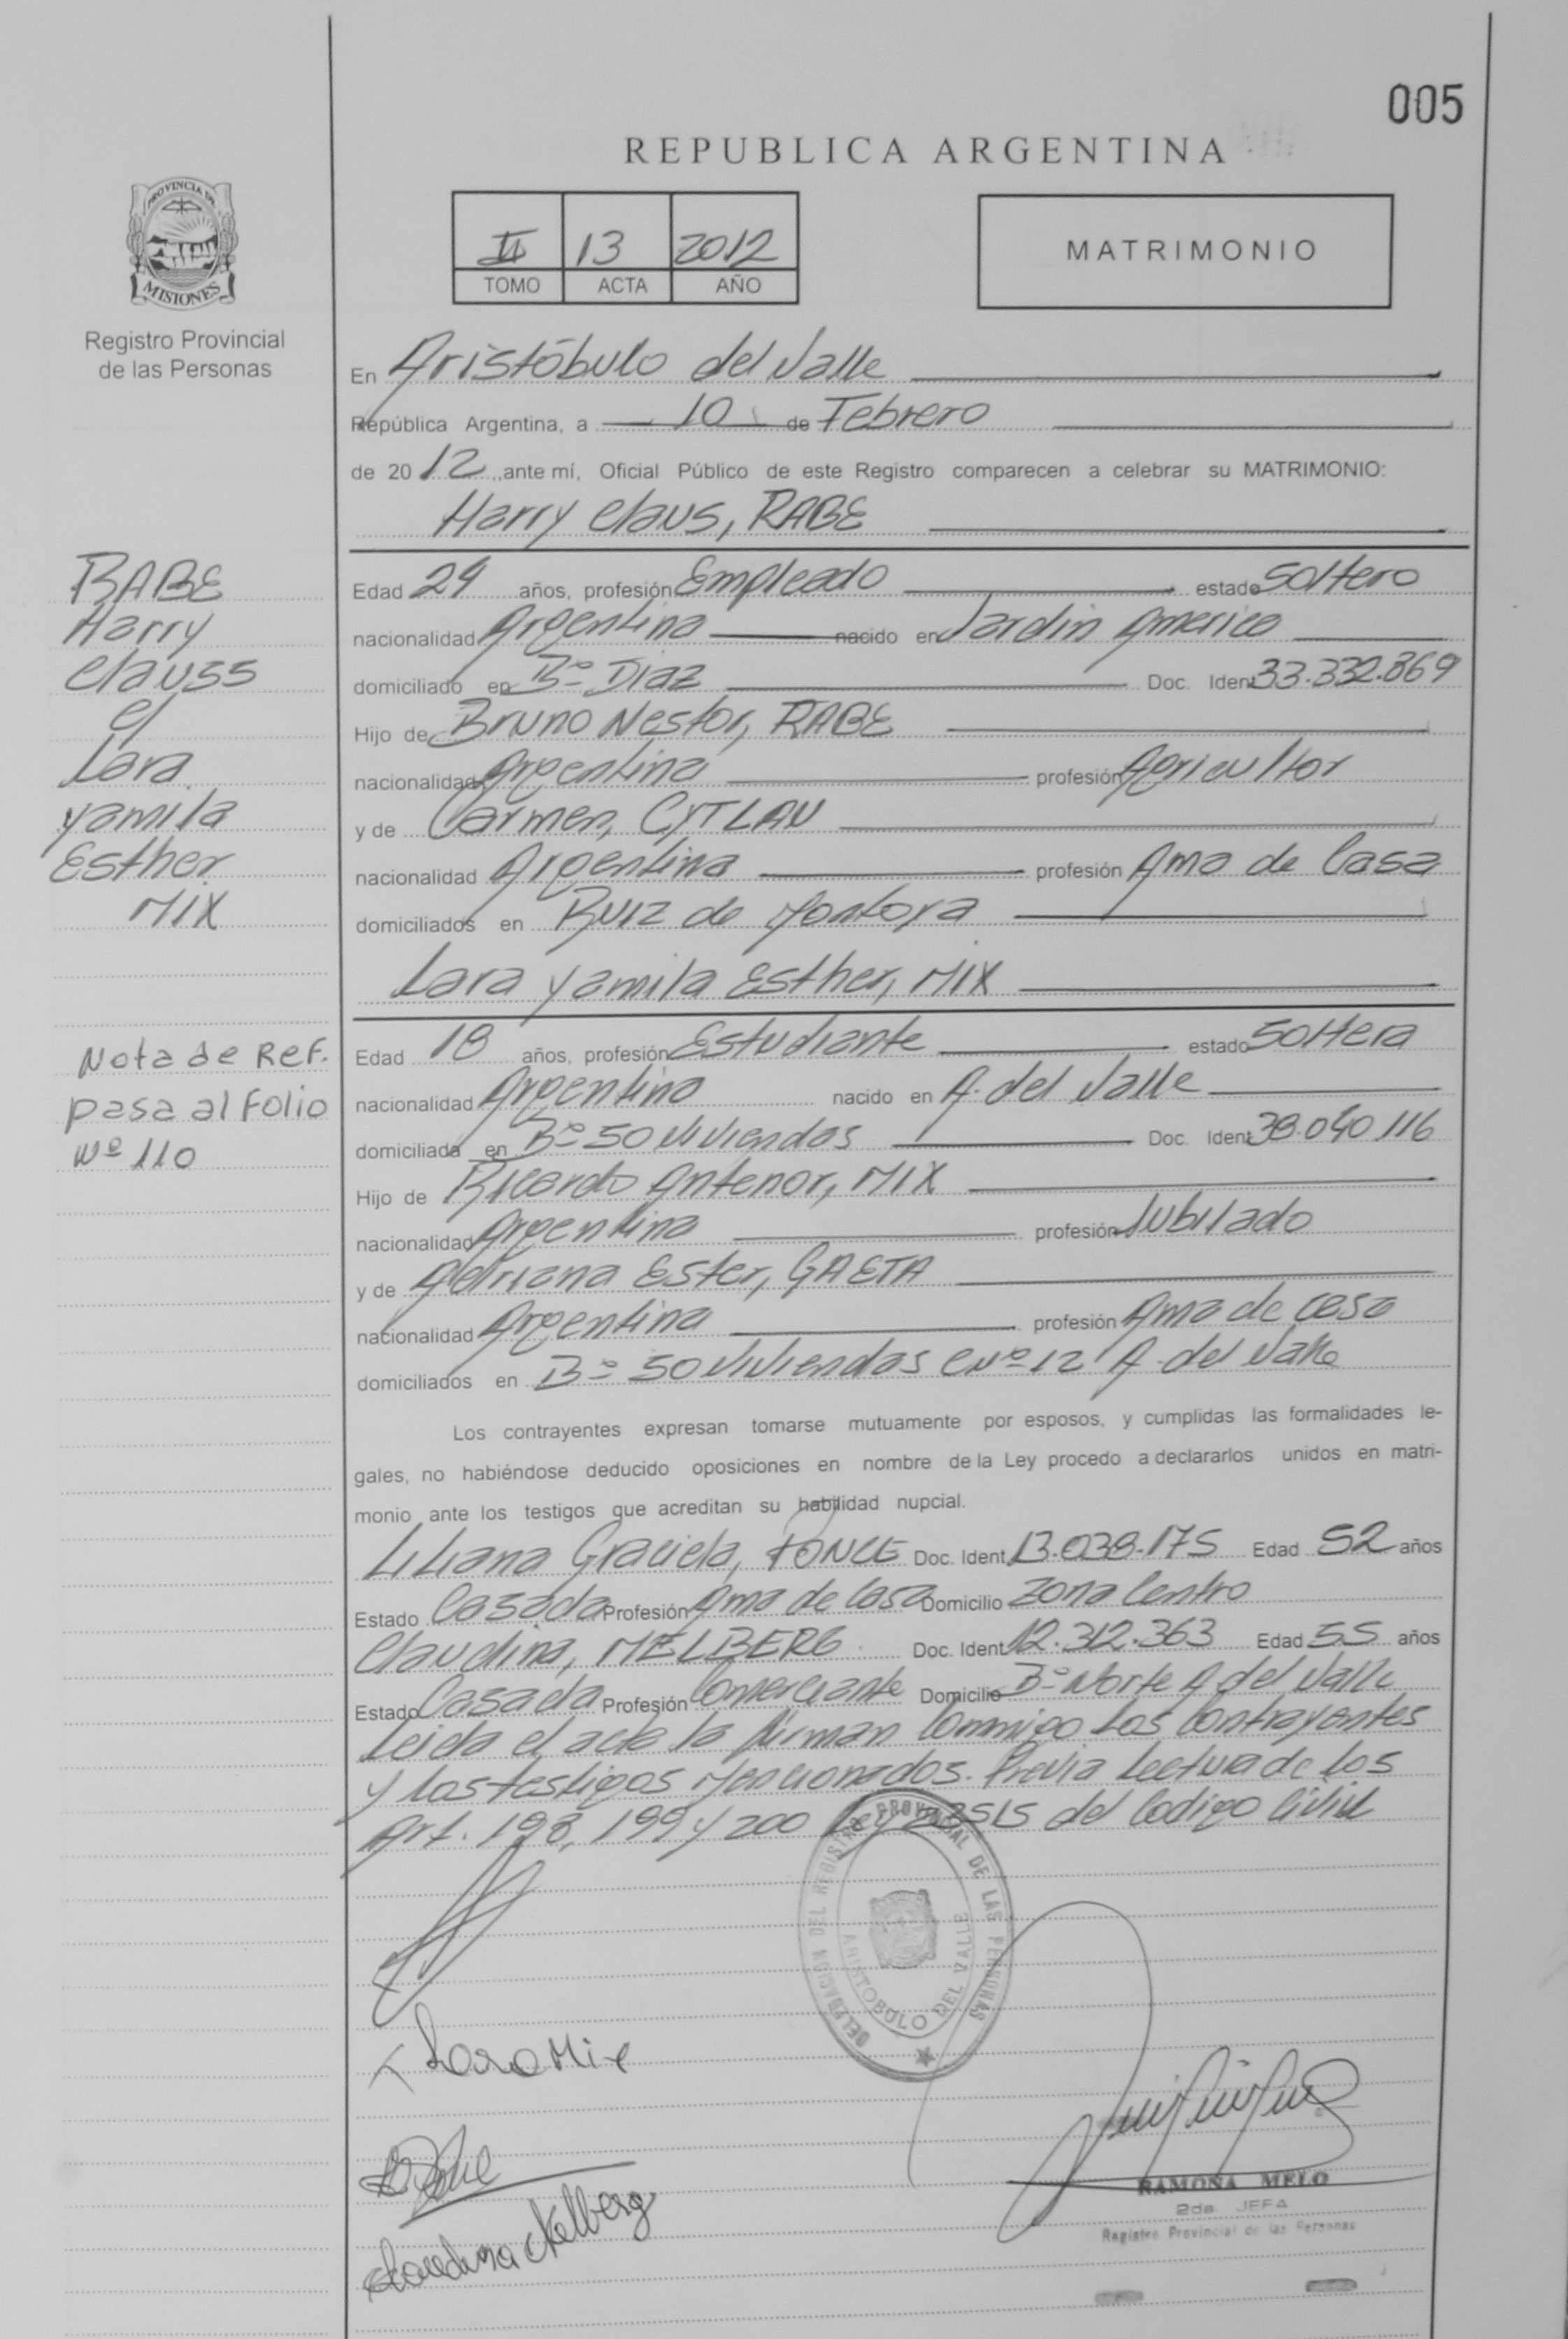 005
REPUBLICA ARGENTINA
PROVINCIA DE
MISIONES
Registro Provincial
de las Personas
II 13 2012
TOMO ACTA AÑO
MATRIMONIO
En Aristóbulo del Valle
República Argentina, a 10 de Febrero
de 20 12 ,, ante mí, Oficial Público de este Registro comparecen a celebrar su MATRIMONIO:
Harry Claus, RABE
RABE
Harry
Clauss
c/
Lara
Yamila
Esther
MIX
Edad 24 años, profesión Empleado estado Soltero
nacionalidad Argentina nacido en Jardin America
domiciliado en Bº Diaz Doc. Ident 33.332.869
Hijo de Bruno Nestor, RABE
nacionalidad Argentina profesión Agricultor
y de Carmen, CYTLAU
nacionalidad Argentina profesión Ama de Casa
domiciliados en Ruiz de Montoya
Lara Yamila Esther, MIX
Nota de Ref.
pasa al Folio
Nº 110
Edad 18 años, profesión Estudiante estado Soltera
nacionalidad Argentina nacido en A. del Valle
domiciliada en Bº 50 Viviendas Doc. Ident 38.040.116
Hijo de Ricardo Antenor, MIX
nacionalidad Argentina profesión Jubilado
y de Adriana Ester, GAETA
nacionalidad Argentina profesión Ama de casa
domiciliados en Bº 50 Viviendas C Nº 12 A. del Valle
Los contrayentes expresan tomarse mutuamente por esposos, y cumplidas las formalidades le-
gales, no habiéndose deducido oposiciones en nombre de la Ley procedo a declararlos unidos en matri-
monio ante los testigos que acreditan su habilidad nupcial.
Liliana Graciela, PONCE Doc. Ident. 13.038.175 Edad 52 años
Estado Casada Profesión Ama de Casa Domicilio Zona Centro
Claudina, MELBERG Doc. Ident 12.312.363 Edad 55 años
Estado Casada Profesión Comerciante Domicilio Bº Norte A del Valle
Leida el acta la firman Conmigo Los Contrayentes
y los testigos Mencionados. Previa Lectura de los
Art. 198, 199 y 200 Ley 23515 del Codigo Civil
DELEGACION DEL REGISTRO PROVINCIAL DE LAS PERSONAS
ARISTOBOLO DEL VALLE
Lara Mix
Claudina Melberg
RAMONA MELO
2da. JEFA
Registro Provincial de las Personas